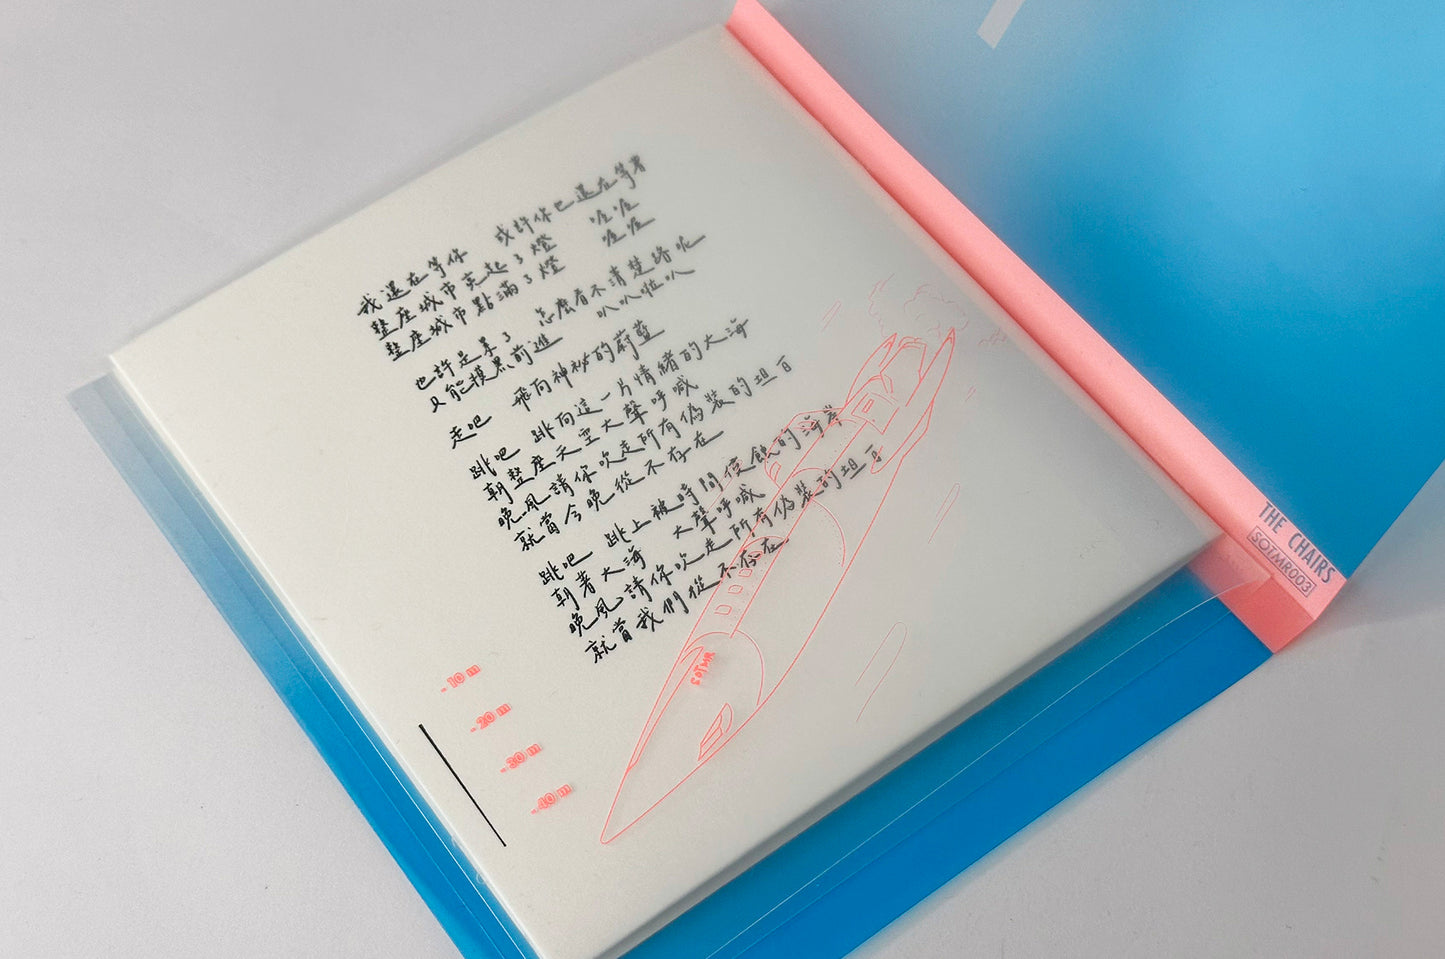 我還在等你 或許你也還在等着
整座城市亮起了燈 喔喔
整座城市點滿了燈 喔喔
也許是累了 怎麼看不清楚路呢
只能摸黑前進 叭叭啦叭
走吧 飛向神祕的蔚藍
跳吧 跳向這一片情緒的大海
朝整座天空大聲呼喊
晚風請你吹走所有偽裝的坦白
就當今晚從不存在
跳吧 跳上被時間侵蝕的海岸
朝著大海 大聲呼喊
晚風請你吹走所有偽裝的坦白
就當我們從不存在
- 10 m
- 20 m
- 30 m
- 40 m
SOTMR
THE CHAIRS
SOTMR003